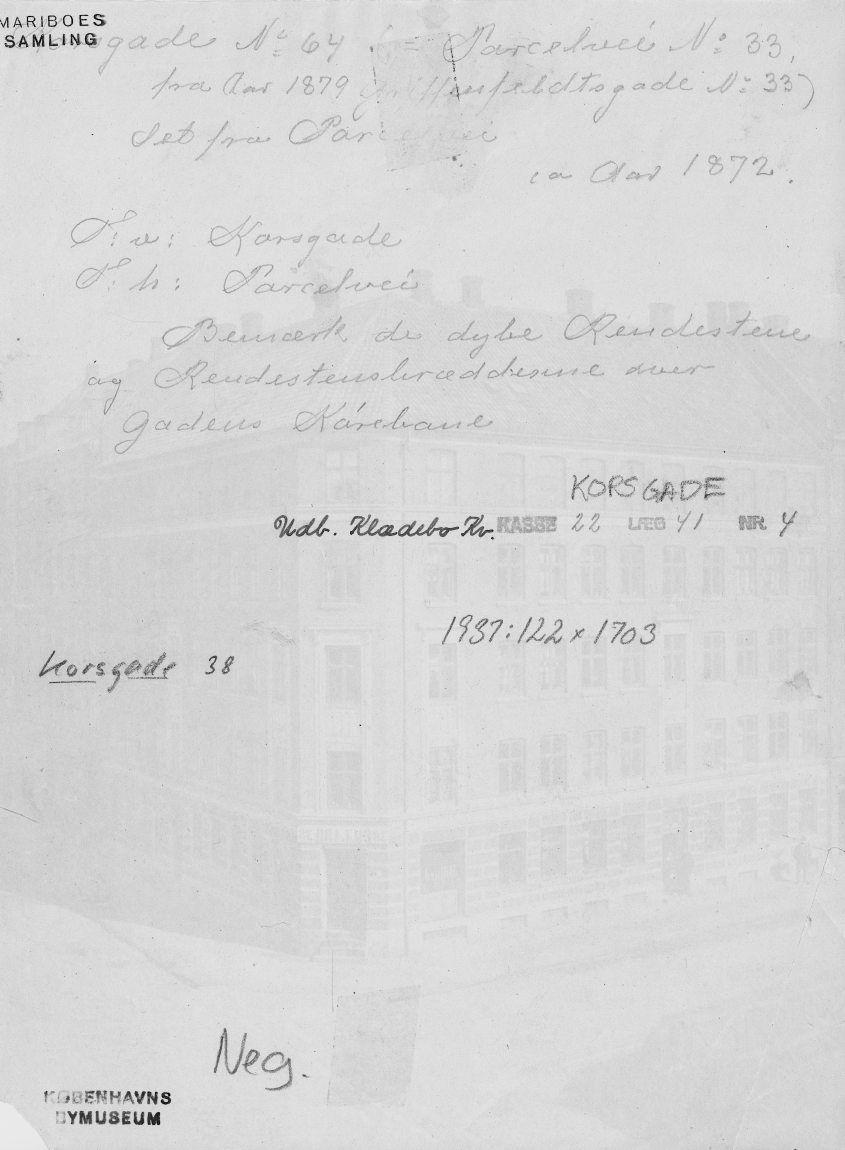 MARIBOES
SAMLING
Korsgade No 64 (= Parcelvei No: 33,
fra Aar 1879 Griffenfeldtsgade No: 33)
Set fra Parcelvei
ca Aar 1872.
T: v: Korsgade
T: h: Parcelvei
Bemærk de dybe Rendestene
og Rendestensbrædderne over
Gadens Kørebane
KORSGADE
Udb. Klædebo Kv. KASSE 22 LÆG 41 NR. 4
1937:122 x 1703
Korsgade 38
Neg.
KØBENHAVNS
BYMUSEUM